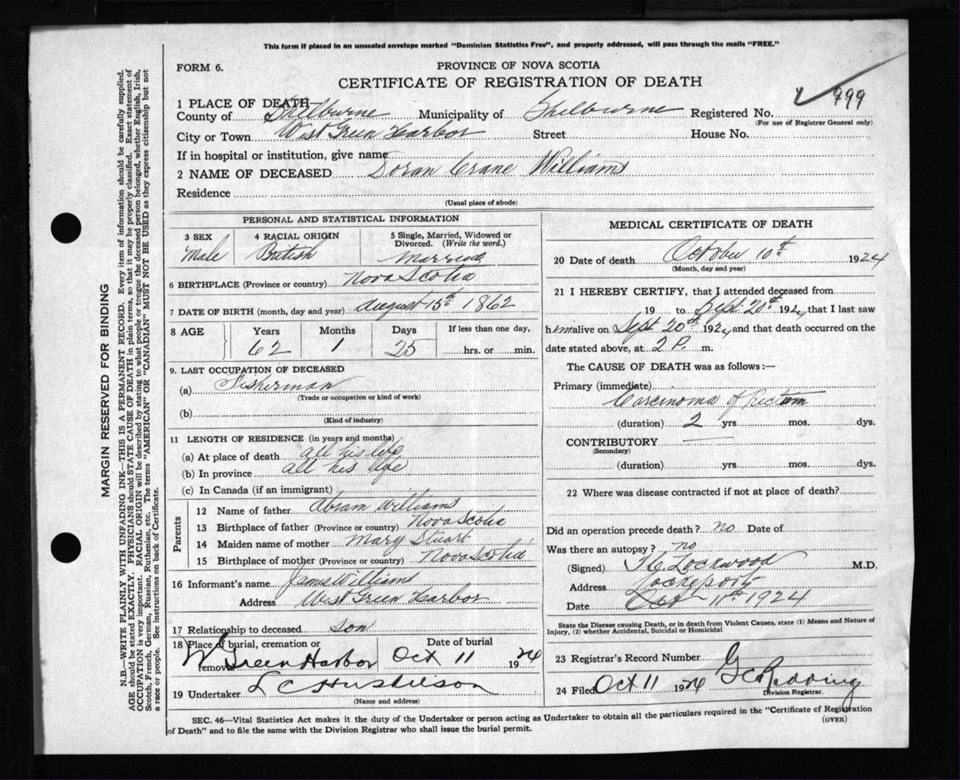 This form if placed in an unsealed envelope marked "Dominion Statistics Free", and properly addressed, will pass through the mails "FREE."
FORM 6.
PROVINCE OF NOVA SCOTIA
CERTIFICATE OF REGISTRATION OF DEATH
999
1 PLACE OF DEATH
County of Shelburne Municipality of Shelburne Registered No.
(For use of Registrar General only)
City or Town West Green Harbor Street House No.
If in hospital or institution, give name
2 NAME OF DECEASED Doran Crane Williams
Residence
(Usual place of abode)
PERSONAL AND STATISTICAL INFORMATION
3 SEX 4 RACIAL ORIGIN 5 Single, Married, Widowed or Divorced. (Write the word.)
Male British Married
6 BIRTHPLACE (Province or country) Nova Scotia
7 DATE OF BIRTH (month, day and year) August 15th 1862
8 AGE Years Months Days If less than one day,
62 1 25 hrs. or min.
9. LAST OCCUPATION OF DECEASED
(a) Fisherman
(Trade or occupation or kind of work)
(b)
(Kind of industry)
11 LENGTH OF RESIDENCE (in years and months)
(a) At place of death all his life
(b) In province all his life
(c) In Canada (if an immigrant)
Parents
12 Name of father Abram Williams
13 Birthplace of father (Province or country) Nova Scotia
14 Maiden name of mother Mary Stuart
15 Birthplace of mother (Province or country) Nova Scotia
16 Informant's name James Williams
Address West Green Harbor
17 Relationship to deceased son
18 Place of burial, cremation or removal Date of burial
W Green Harbor Oct 11 1924
19 Undertaker L C
(Name and address)
MEDICAL CERTIFICATE OF DEATH
20 Date of death October 10th 1924
(Month, day and year)
21 I HEREBY CERTIFY, that I attended deceased from
19 to Sept 20th 1924, that I last saw
him alive on Sept 20th 1924 and that death occurred on
date stated above, at 2 P. m.
The CAUSE OF DEATH was as follows:—
Primary (immediate)
Carcinoma of rectum
(duration) 2 yrs. mos. dys.
CONTRIBUTORY —
(Secondary)
(duration) yrs. mos. dys.
22 Where was disease contracted if not at place of death?
Did an operation precede death? no Date of
Was there an autopsy? no
(Signed) Lockwood M.D.
Address Lockeport
Date Oct 11th 1924
State the Disease causing Death, or in death from Violent Causes, state (1) Means and Nature of Injury, (2) whether Accidental, Suicidal or Homicidal
23 Registrar's Record Number
24 Filed Oct 11 1924
Division Registrar.
SEC. 46—Vital Statistics Act makes it the duty of the Undertaker or person acting as Undertaker to obtain all the particulars required in the "Certificate of Registration of Death" and to file the same with the Division Registrar who shall issue the burial permit.
(OVER)
MARGIN RESERVED FOR BINDING
N.B.—WRITE PLAINLY WITH UNFADING INK—THIS IS A PERMANENT RECORD. Every item of information should be carefully supplied.
AGE should be stated EXACTLY. PHYSICIANS should STATE CAUSE OF DEATH in plain terms, so that it may be properly classified. Exact statement of
OCCUPATION is very important. RACIAL ORIGIN will be described by stating to what people or tongue the deceased person belonged, whether English, Irish,
Scotch, French, German, Russian, Ruthenian, etc. The terms "AMERICAN" OR "CANADIAN" MUST NOT BE USED as they express citizenship but not
a race or people. See instructions on back of Certificate.